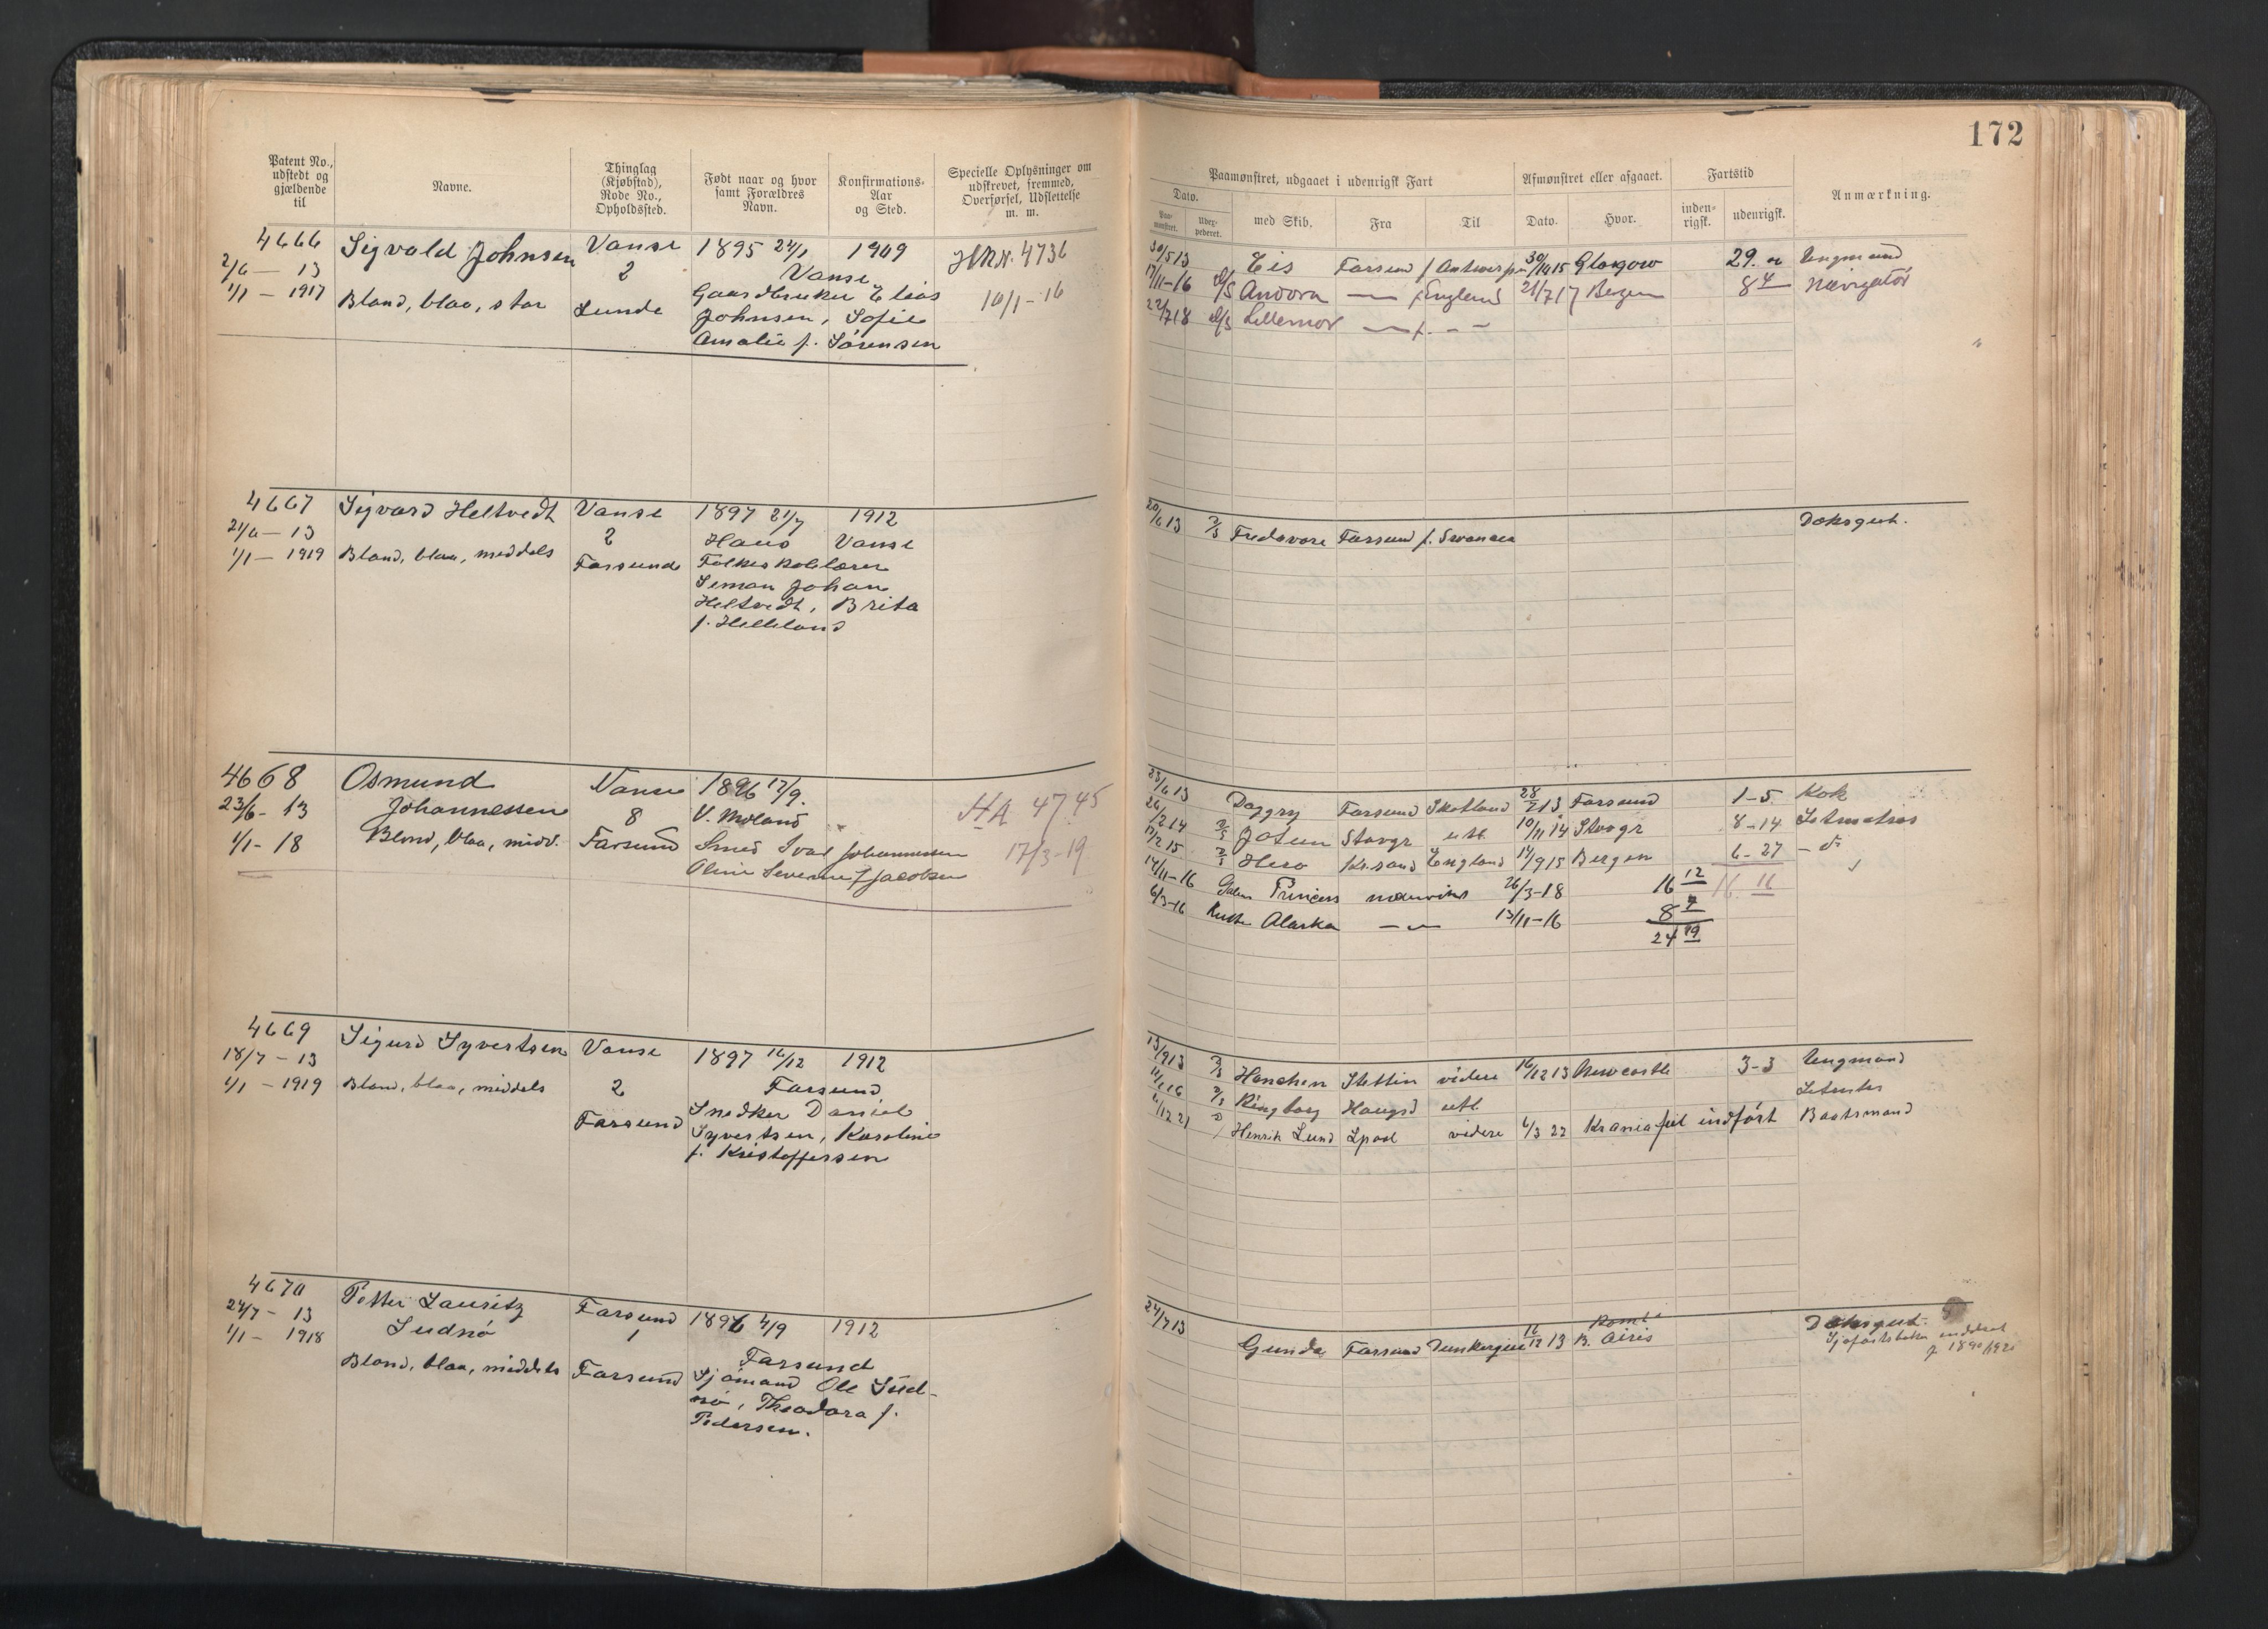 172
Patent No., udstedt og gjældende til
Navne.
Thinglag (Kjøbstad), Rode No., Opholdssted.
Født naar og hvor samt Forældres Navn.
Konfirmations-Aar og Sted.
Specielle Oplysninger om udskrevet, fremmed, Overførsel, Udslettelse m. m.
Paamønstret, udgaaet i udenrigsk Fart
Afmønstret eller afgaaet.
Fartstid
Anmærkning.
Dato.
Paa-mønstret.
Uder-pederet.
med Skib.
Fra
Til
Dato.
Hvor.
inden-rigsk.
udenrigsk.
4666
Sigvald Johnsen
Vanse
1895 24/1
1909
HRN. 4736
2/6 — 13
2
Vanse
1/1 — 1917
Bland, blaa, stor
Lunde
Gaardbruker Elias
10/1-16
Johnsen, Sofie
Amalie f. Sørensen
30/5 13
Eis
Farsund f Antwerpen
30/10 15
Glasgow
Ungmand
17/11-16
D/S Andora
— f England
21/7 17
Bergen
Navigatør
22/7 18
D/S Lillemor
4667
Sigvard Heltvedt
Vanse
1897 21/7
1912
21/6 — 13
2
Haus
Vanse
1/1 — 1919
Bland, blaa, middels
Farsund
Folkeskolelærer
Simon Johan
Heltvedt, Brita
f. Helleland
20/6 13
Fredavore
Farsund f. Swansea
Dæksgut.
4668
Osmund
Vanse
1896 17/9.
23/6- 13
Johannessen
8
V. Moland
HA 4745
1/1- 18
Blond, blaa, midd.
Farsund
Smed Ivar Johannessen
17/3-19
Oline Severine f Jacobsen
23/6 13
Daggry
Farsund
Skotland
28/2 13
Farsund
1-5
Kok
26/2 14
Jotun
Stavgr
utl
10/11 14
Stavgr
8-14
Letmatros
17/2 15
Hero
Kr.sand
England
14/9 15
Bergen
6-27
14/11-16
Princess
26/3-18
16 12
16 16
6/3-16
Alaska
13/11-16
8 7
24 19
4669
Sigurd Syvertsen
Vanse
1897 16/12
1912
18/7 — 13
1/1 — 1919
Bland, blaa, middels
2
Farsund
Farsund
Snedker Daniel
Syvertsen, Karoline
f. Kristoffersen
13/9 13
Hanchen
Stettin
videre
16/12 13
Newcastle
3-3
Ungmand
Ringborg
Haugsd
utl
6/12 21
Henrik Lund
Lpool
videre
6/3 22
Krania ful indført
Baatsmand
4670
Petter Lauritz
Farsund
1896 4/9
1912
24/7 — 13
Sudnø
1
1/1 — 1918
Farsund
Bland, blaa, middels
Farsund
Sjømand Ole Sud-
nø, Theodora f.
Pedersen.
24/7 13
Gunda
Farsund
Dunkerque
16/12 13
B. Airis
Dæksgut.